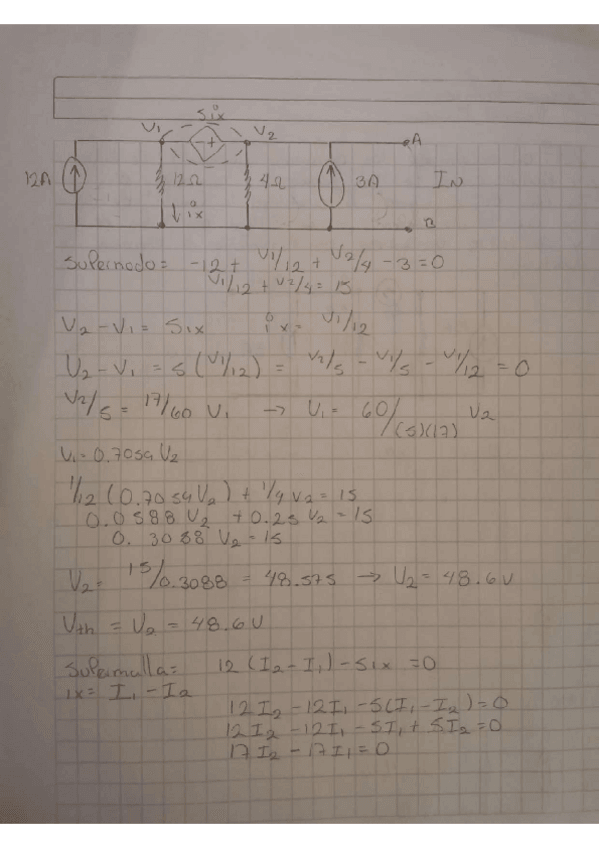 5ix
V1 V2 A
12A 12Ω 4Ω 3A IN
↓ ix
B
Supernodo= -12 + V1/12 + V2/4 - 3 = 0
V1/12 + V2/4 = 15
V2 - V1 = 5ix ix = V1/12
V2 - V1 = 5 (V1/12) = V2/5 - V1/5 - V1/12 = 0
V2/5 = 17/60 V1 → V1 = 60/(5)(17) V2
V1 = 0.7059 V2
1/12 (0.7059 V2) + 1/4 V2 = 15
0.0588 V2 + 0.25 V2 = 15
0.3088 V2 = 15
V2 = 15/0.3088 = 48.575 → V2 = 48.6 V
Vth = V2 = 48.6 V
Supermalla= 12 (I2 - I1) - 5ix = 0
ix = I1 - I2
12I2 - 12I1 - 5(I1 - I2) = 0
12I2 - 12I1 - 5I1 + 5I2 = 0
17I2 - 17I1 = 0